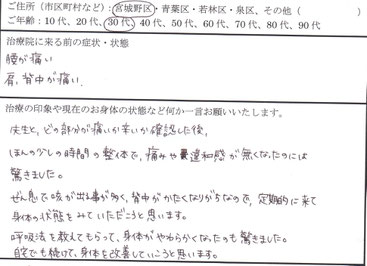 ご住所（市区町村など）：宮城野区・青葉区・若林区・泉区、その他（　　　　）
ご年齢：10代、20代、30代、40代、50代、60代、70代、80代、90代
治療院に来る前の症状・状態
腰が痛い
肩、背中が痛い。
治療の印象や現在のお身体の状態など何か一言お願いいたします。
先生と、どの部分が痛いか辛いか確認した後、
ほんの少しの時間の整体で、痛みや違和感が無くなったのには
驚きました。
ぜん息で咳が出る事が多く、背中がかたくなりがちなので、定期的に来て
身体の状態をみていただこうと思います。
呼吸法を教えてもらって、身体がやわらかくなったのも驚きました。
自宅でも続けて、身体を改善していこうと思います。